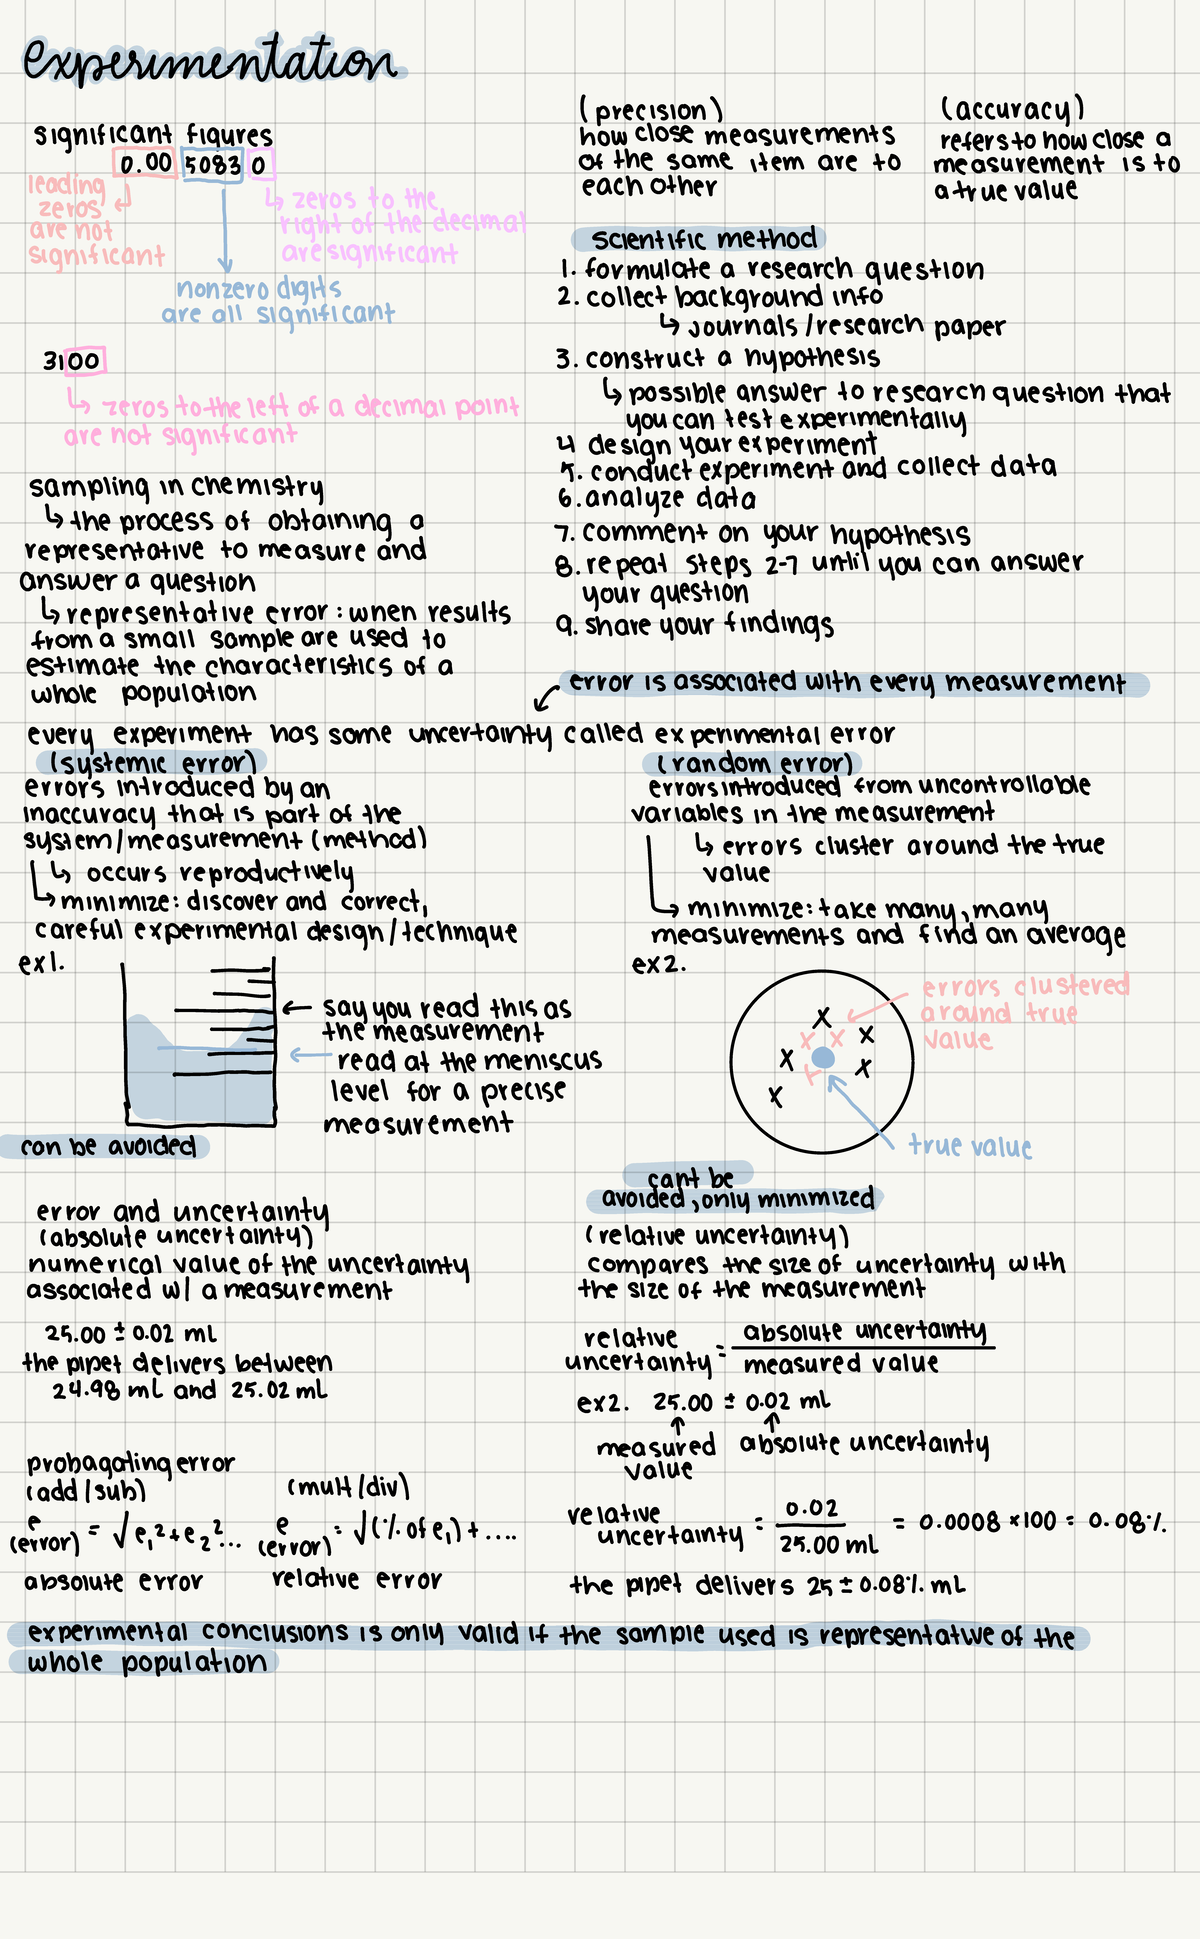 experimentation
significant figures
0.00 5083 0
leading
zeros
are not
significant
zeros to the
right of the decimal
are significant
nonzero digits
are all significant
3100
↳ zeros to the left of a decimal point
are not significant
sampling in chemistry
↳ the process of obtaining a
representative to measure and
answer a question
↳ representative error: when results
from a small sample are used to
estimate the characteristics of a
whole population
(precision)
how close measurements
of the same item are to
each other
(accuracy)
refers to how close a
measurement is to
a true value
scientific method
1. formulate a research question
2. collect background info
↳ journals/research paper
3. construct a hypothesis
↳ possible answer to research question that
you can test experimentally
4 design your experiment
5. conduct experiment and collect data
6. analyze data
7. comment on your hypothesis
8. repeat steps 2-7 until you can answer
your question
9. share your findings
error is associated with every measurement
every experiment has some uncertainty called experimental error
(systemic error)
errors introduced by an
inaccuracy that is part of the
system/measurement (method)
↳ occurs reproductively
→ minimize: discover and correct,
careful experimental design/technique
ex1.
← say you read this as
the measurement
← read at the meniscus
level for a precise
measurement
can be avoided
(random error)
errors introduced from uncontrollable
variables in the measurement
↳ errors cluster around the true
value
→ minimize: take many, many
measurements and find an average
ex2.
errors clustered
around true
value
true value
cant be
avoided, only minimized
error and uncertainty
(absolute uncertainty)
numerical value of the uncertainty
associated w/ a measurement
25.00 ± 0.02 mL
the pipet delivers between
24.98 mL and 25.02 mL
(relative uncertainty)
compares the size of uncertainty with
the size of the measurement
relative uncertainty = absolute uncertainty / measured value
ex2. 25.00 ± 0.02 mL
measured value
absolute uncertainty
relative uncertainty = 0.02 / 25.00 mL = 0.0008 × 100 = 0.08%
the pipet delivers 25 ± 0.08% mL
probagating error
(add/sub)
e (error) = √e₁² + e₂² ...
absolute error
(mult/div)
e (error) = √(% of e₁) + ....
relative error
experimental conclusions is only valid if the sample used is representative of the
whole population